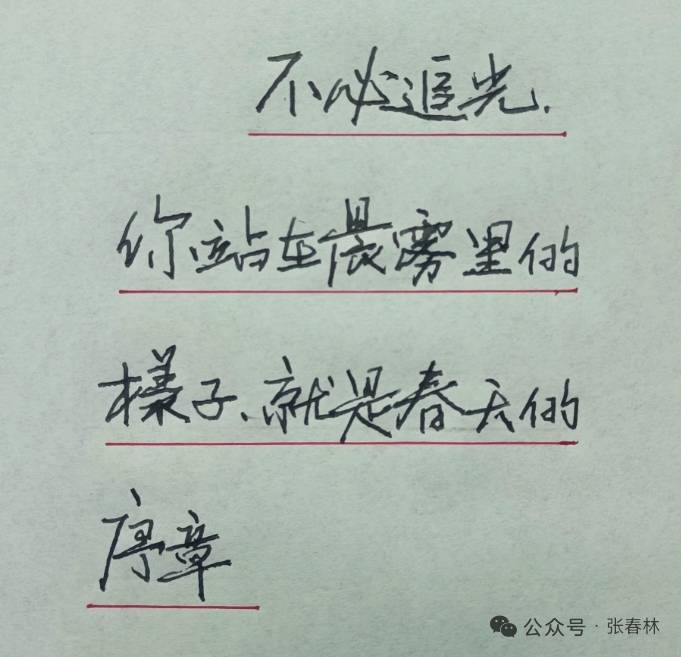 不必追光.
你站在晨雾里的
様子、就是春天的
序章
公众号·张春林